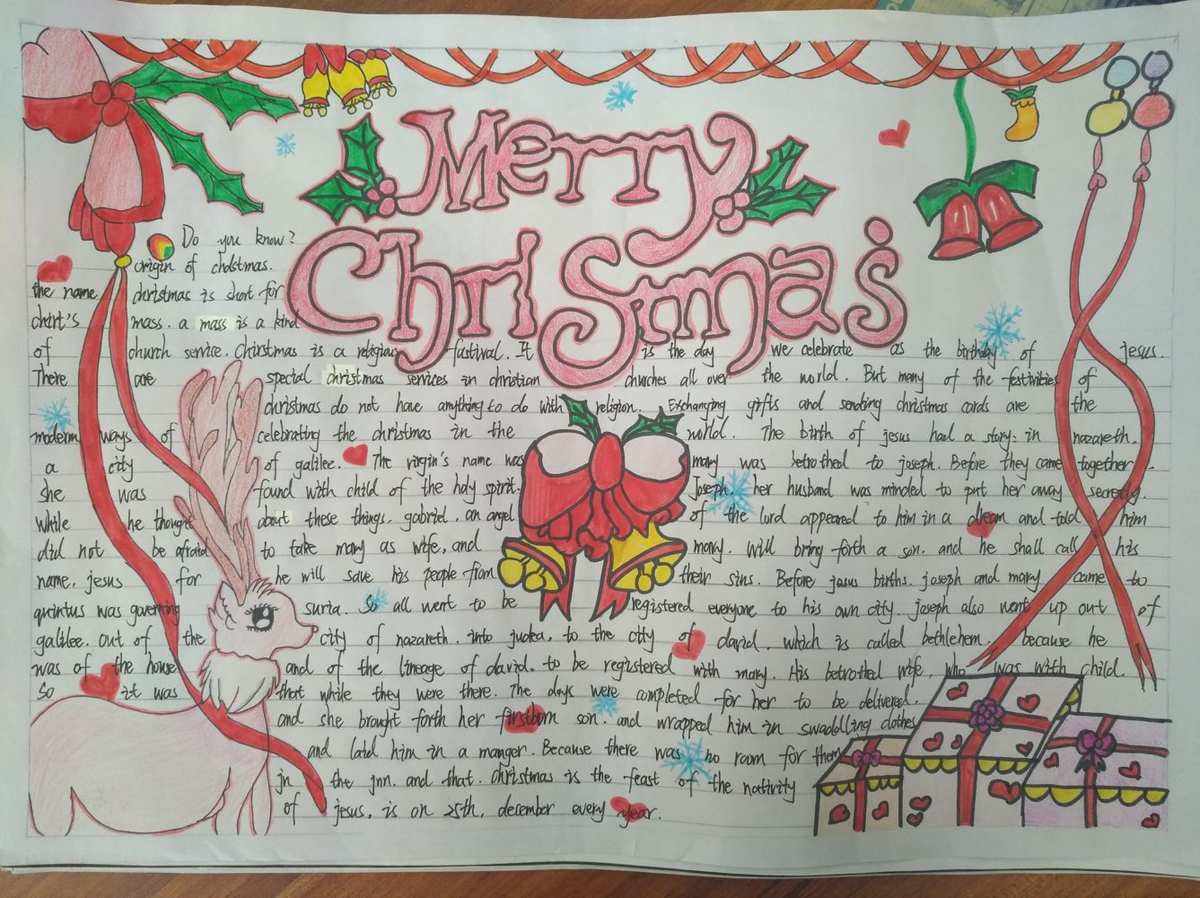 Merry
Christmas
Do you know?
origin of christmas.
the name christmas is short for
chirt's mass. a mass is a kind
of church service. Chirstmas is a religious fastival. It is the day we celebrate as the birthday of jesus.
There are special christmas services in christian churches all over the world. But many of the festivities of
christmas do not have anything to do with religion. Exchanging grifts and sending christmas cards are the
modern ways of celebrating the christmas in the world. The birth of jesus had a story: in nazareth.
a city of galilee. The virgin's name was mary was betrothed to joseph. Before they came together.
she was found with child of the holy spirit. Joseph, her husband was minded to put her away secretly.
While he thought about these things. gabriel. an angel of the lord appeared to him in a dream and told him
did not be afraid to take mary as wife, and mary. Will bring forth a son. and he shall call his
name. jesus for he will save his people from their sins. Before jesus births. joseph and mary came to
quirtus was governing suria. So all went to be registered everyone to his own city. joseph also went up out of
galilee. out of the city of nazareth. into judea, to the city of david. which is called bethlehem. because he
was of the house and of the lineage of david. to be registered with mary. His betrothed wife, who was with child.
So it was that while they were there. The days were completed for her to be delivered.
and she brought forth her firstborn son. and wrapped him in swaddling clothes
and laid him in a manger. Because there was no room for them
jn the jnn. and that. christmas is the feast of the nativity
of jesus, is on 25th, desember every year.